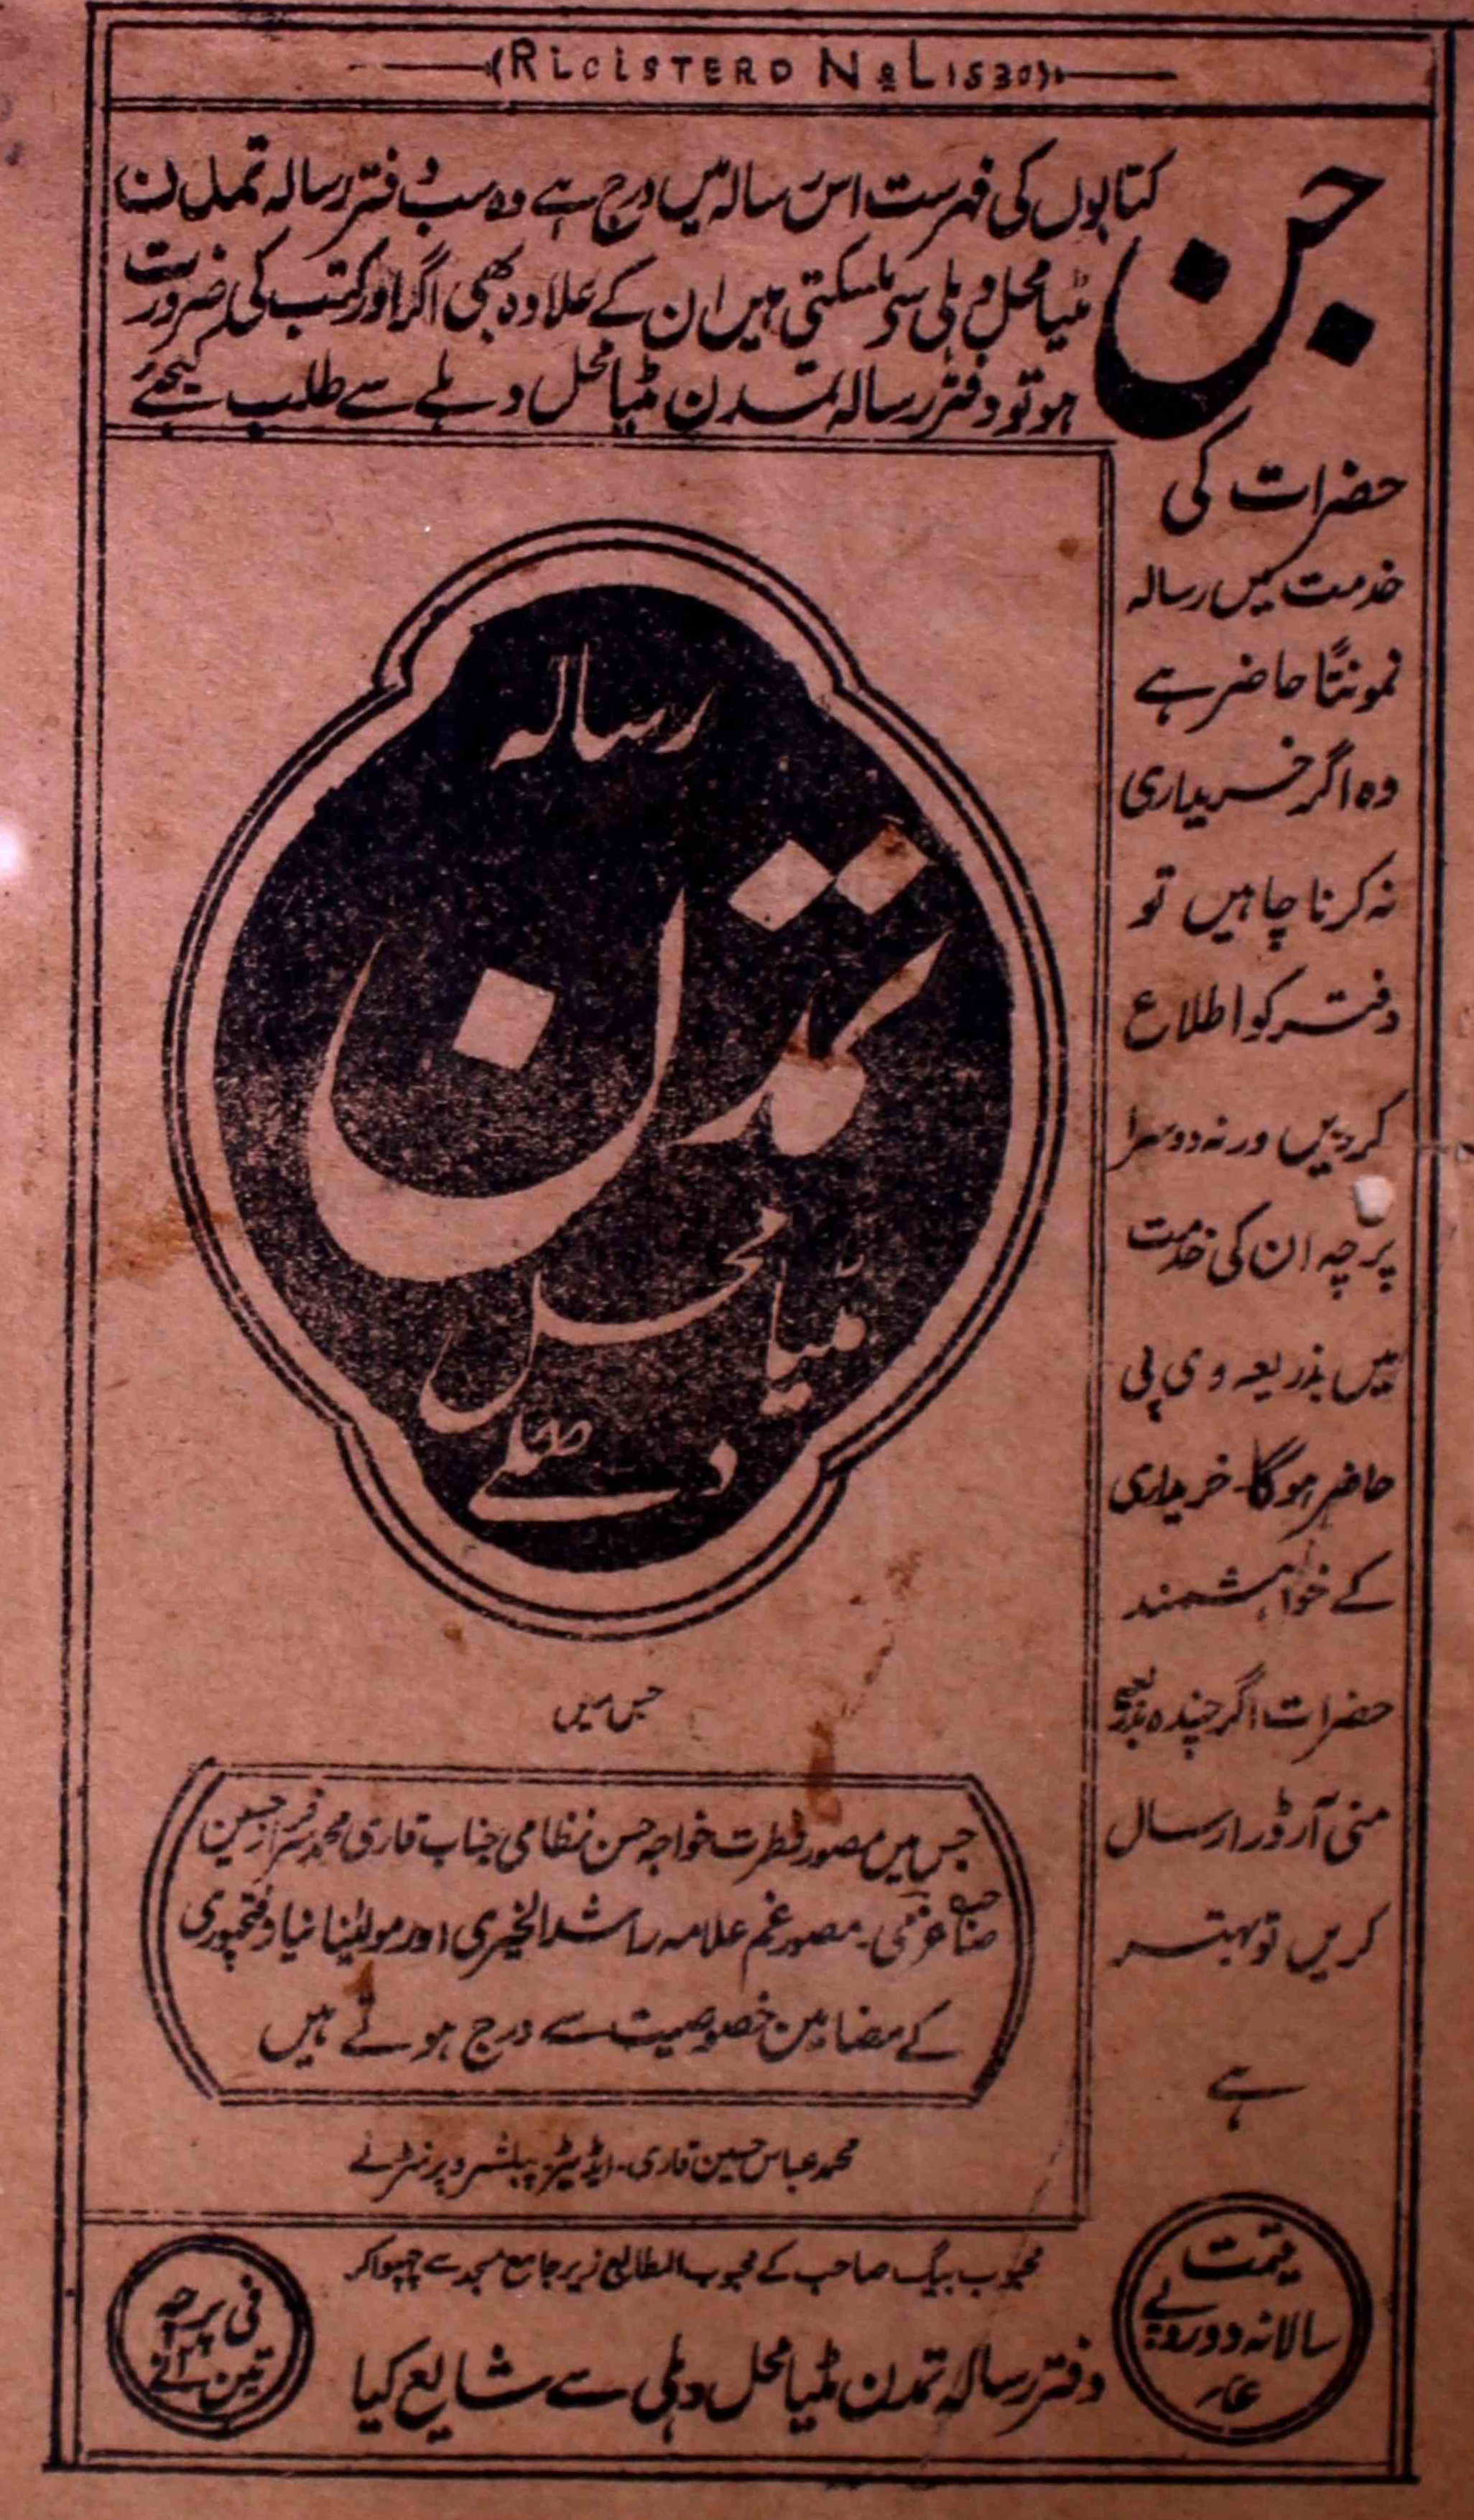 (RICISTERD No L1530)
جن
کتابوں کی فہرست اس رسالہ میں درج ہے وہ سب دفتر رسالہ تمدن
مٹیا محل دہلی سے مل سکتی ہیں ان کے علاوہ بھی اگر اور کتب کی ضرورت
ہو تو دفتر رسالہ تمدن مٹیا محل دہلے سے طلب کیجئے
حضرات کی
خدمت میں رسالہ
نمونتًا حاضر ہے
وہ اگر خریداری
نہ کرنا چاہیں تو
دفتر کو اطلاع
کردیں ورنہ دوسرا
پرچہ ان کی خدمت
میں بذریعہ وی پی
حاضر ہوگا۔ خریداری
کے خواہشمند
حضرات اگر چندہ بذریعہ
منی آرڈر ارسال
کریں تو بہتر
ہے
رسالہ
تمدن
مٹیا محل
دہلے
جس میں
جس میں مصور فطرت خواجہ حسن نظامی جناب قاری محمد سرفراز حسین
صاحب عزمی۔ مصور غم علامہ راشد الخیری اور مولینا نیاز فتحپوری
کے مضامین خصوصیت سے درج ہوتے ہیں
محمد عباس حسین قاری۔ ایڈیٹر پبلشر و پرنٹر نے
محبوب بیگ صاحب کے محبوب المطابع زیر جامع مسجد سے چھپواکر
دفتر رسالہ تمدن مٹیا محل دہلی سے شایع کیا
قیمت
سالانہ دو روپے
عہ
فی پرچہ
۳؍
تین آنے